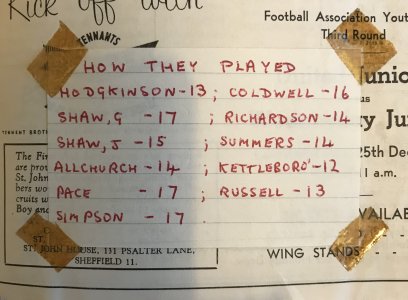 Kick off with
TENNANTS
Football Association Yout
Third Round
HOW THEY PLAYED
HODGKINSON-13; COLDWELL-16
SHAW, G -17 ; RICHARDSON-14
SHAW, J -15 ; SUMMERS-14
ALLCHURCH-14 ; KETTLEBORO'-12
PACE -17 ; RUSSELL-13
SIMPSON -17
TENNANT BROT
The Fir
are prov
St. John
bers wo
cruits w
Boy and
ST. JOHN HOUSE, 131 PSALTER LANE,
SHEFFIELD 11.
Junio
us
y Ju
25th Dec
1 a.m.
AVAILAB
WING STANDS